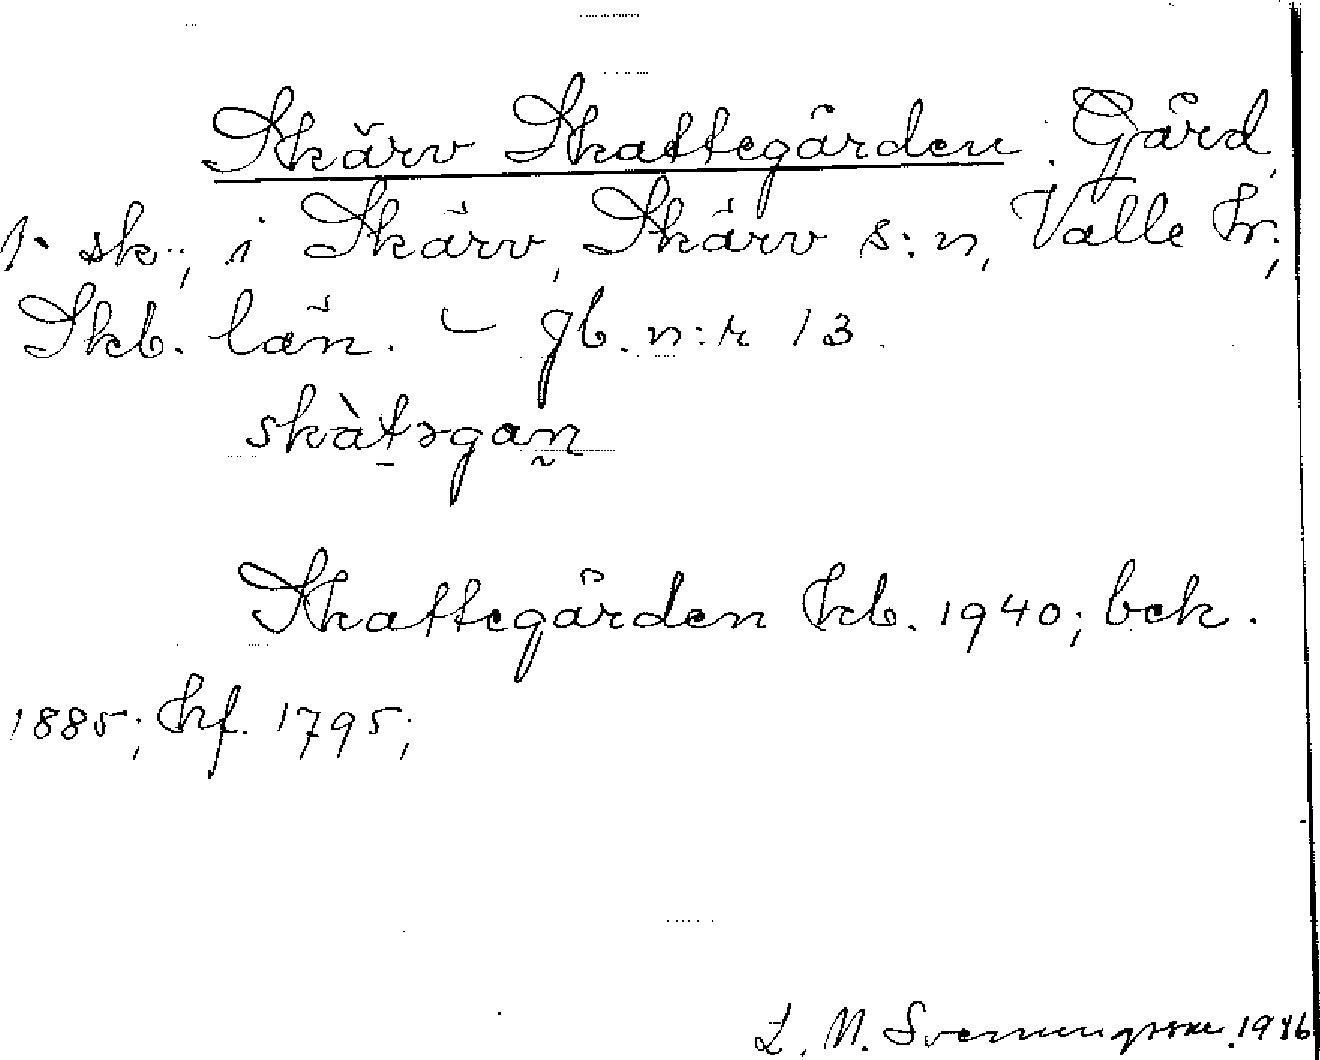 Skärv Skattegården. Gård,
1 sk.; i Skärv, Skärv s:n, Valle hr;
Skb. län. – gb. n:r 13.
skàt̠əgan̰
Skattegården kb. 1940; bek.
1885; hf. 1795;
L. M. Svenungsson. 1946